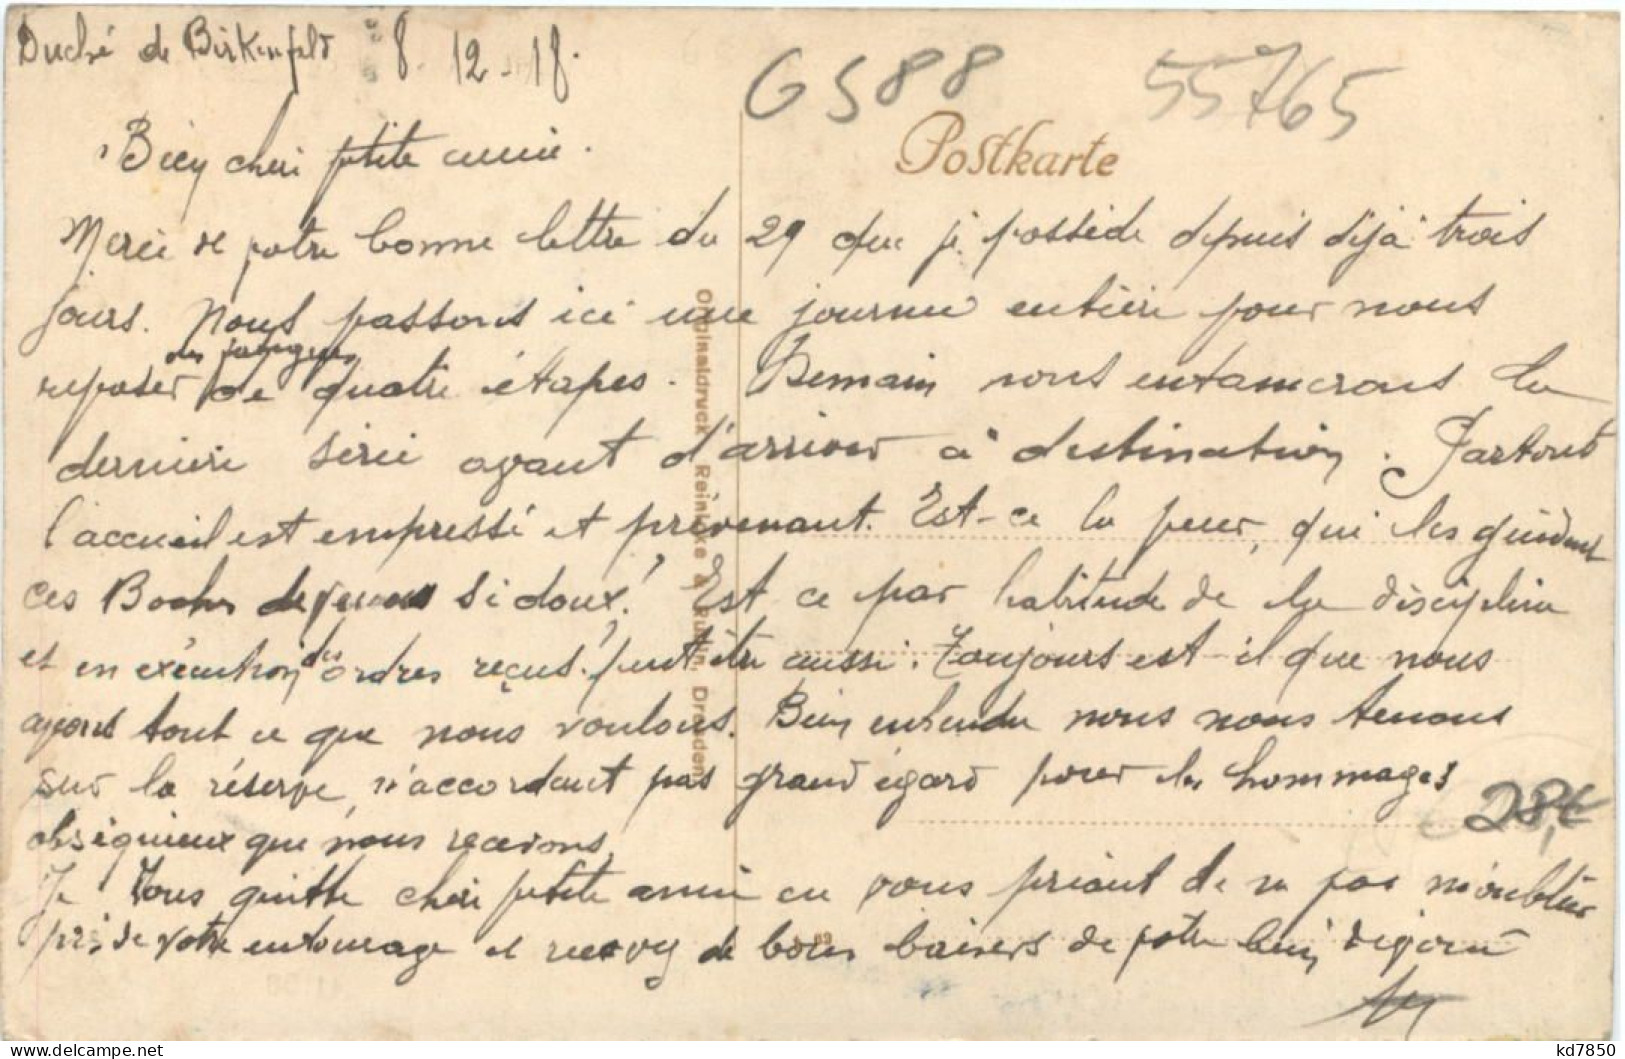 Duché de Birkenfeld 8.12-18.
GS88 55765
Postkarte
Bien cheri petite amie.
Merci de votre bonne lettre du 29 que je possède depuis déja trois
jours. Nous passons ici une journée entière pour nous
des fatigues
reposer de quatre étapes. Demain nous entamerons la
dernière série avant d'arriver à destination. Partout
l'accueil est empressé et prévenant. Est-ce la peur, qui les
ces Boches devenus si doux! Est ce par habitude de la discipline
et en exécution des ordres reçus! peut être aussi. Toujours est-il que nous
ayons tout ce que nous voulons. Bien entendu nous nous tenons
sur la réserve, n'accordant pas grand égard pour les hommages
obséquieux que nous recevons.
Je vous quitte chère petite amie en vous priant de ne pas m'oublier
près de votre entourage et recevez de bons baisers de votre bien
Originaldruck Reinicke & Rubin, Dresden
28,€
kd7850